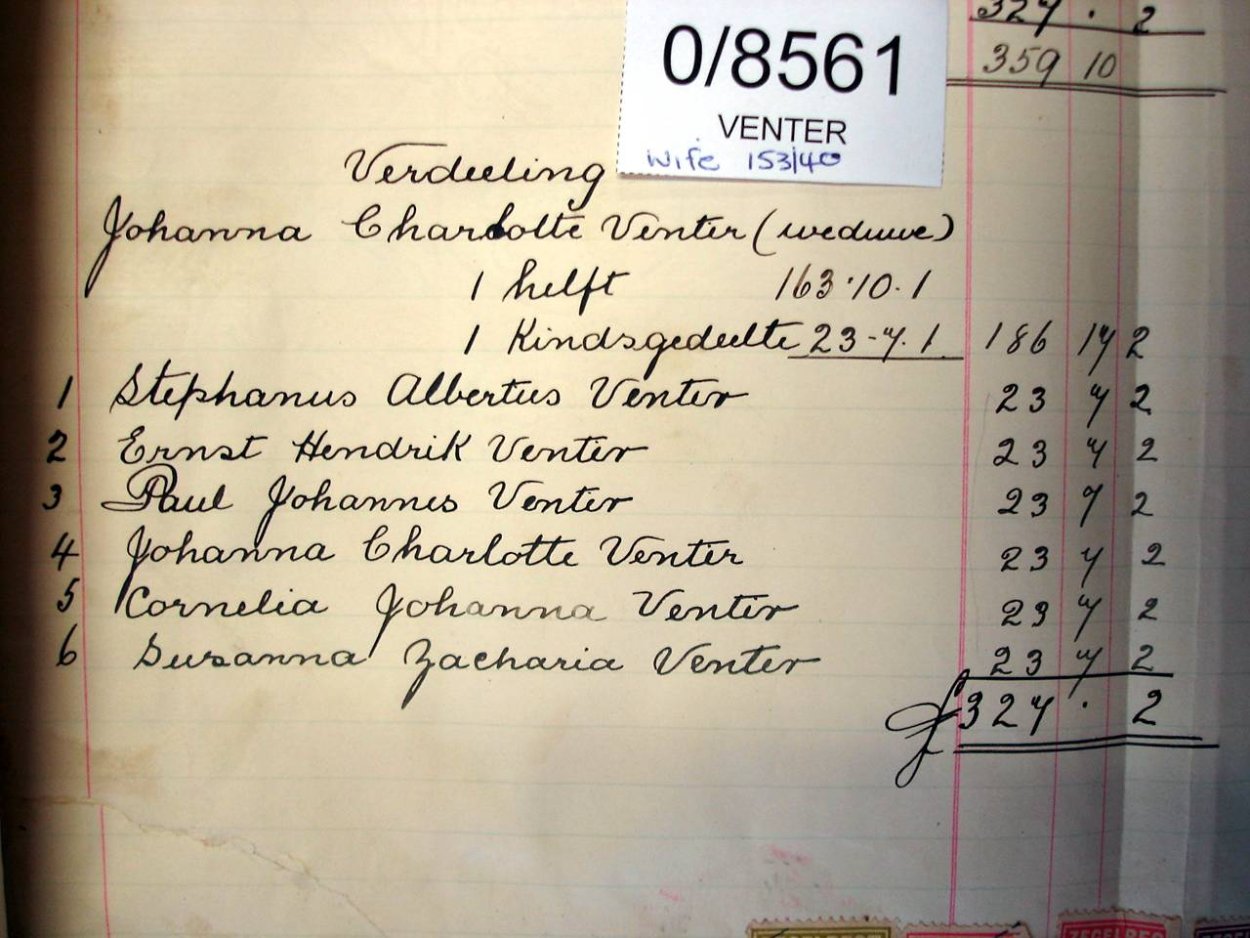 327 . 2
359 10
0/8561
VENTER
Wife 153/40
Verdeeling
Johanna Charlotte Venter (weduwe)
1 helft 163.10.1
1 Kindsgedeelte 23-7.1. 186 17 2
1 Stephanus Albertus Venter 23 7 2
2 Ernst Hendrik Venter 23 7 2
3 Paul Johannes Venter 23 7 2
4 Johanna Charlotte Venter 23 7 2
5 Cornelia Johanna Venter 23 7 2
6 Susanna Zacharia Venter 23 7 2
£ 327 . 2